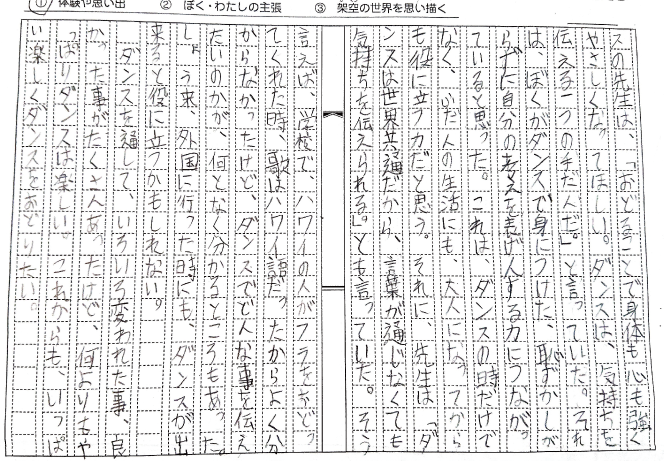 ① 体験や思い出　② ぼく・わたしの主張　③ 架空の世界を思い描く
スの先生は、「おどることで身体も心も強く
やさしくなってほしい。ダンスは、気持ちを
伝える一つの手だんだ。」と言っていた。それ
は、ぼくがダンスで身につけた、恥ずかしが
らずに自分の考えを表げんする力につながっ
ていると思った。これは、ダンスの時だけで
なく、ふだんの生活にも、大人になってから
も役に立つ力だと思う。それに、先生は「ダ
ンスは世界共通だから、言葉が通じなくても
気持ちを伝えられる。」とも言っていた。そう
言えば、学校で、ハワイの人がフラをおどっ
てくれた時、歌はハワイ語だったからよく分
からなかったけど、ダンスでどんな事を伝え
たいのかが、何となく分かるところもあった。
しょう来、外国に行った時にも、ダンスが出
来ると役に立つかもしれない。
　ダンスを通して、いろいろ変われた事、良
かった事がたくさんあったけど、何よりもや
っぱりダンスは楽しい。これからも、いっぱ
い楽しくダンスをおどりたい。